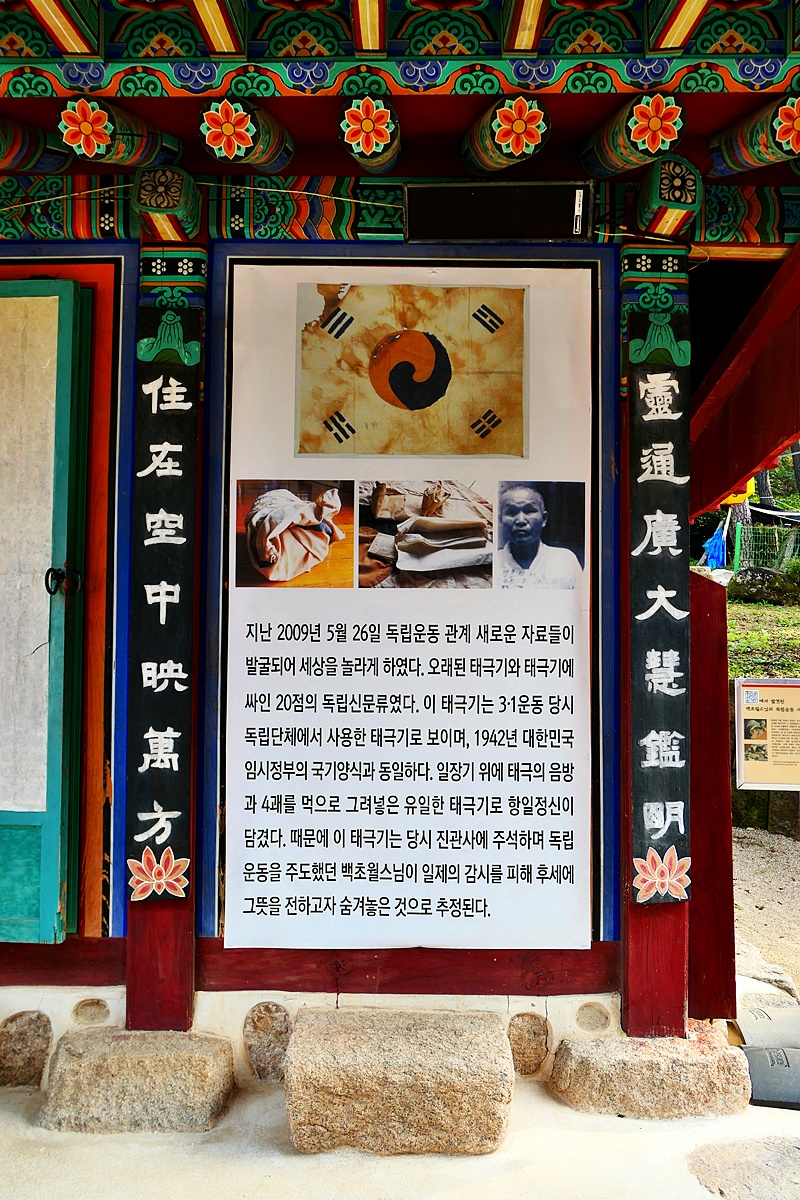 住在空中映萬方
지난 2009년 5월 26일 독립운동 관계 새로운 자료들이
발굴되어 세상을 놀라게 하였다. 오래된 태극기와 태극기에
싸인 20점의 독립신문류였다. 이 태극기는 3·1운동 당시
독립단체에서 사용한 태극기로 보이며, 1942년 대한민국
임시정부의 국기양식과 동일하다. 일장기 위에 태극의 음방
과 4괘를 먹으로 그려넣은 유일한 태극기로 항일정신이
담겼다. 때문에 이 태극기는 당시 진관사에 주석하며 독립
운동을 주도했던 백초월스님이 일제의 감시를 피해 후세에
그뜻을 전하고자 숨겨놓은 것으로 추정된다.
靈通廣大慧鑑明
에서 발견된
백초월스님의 독립운동